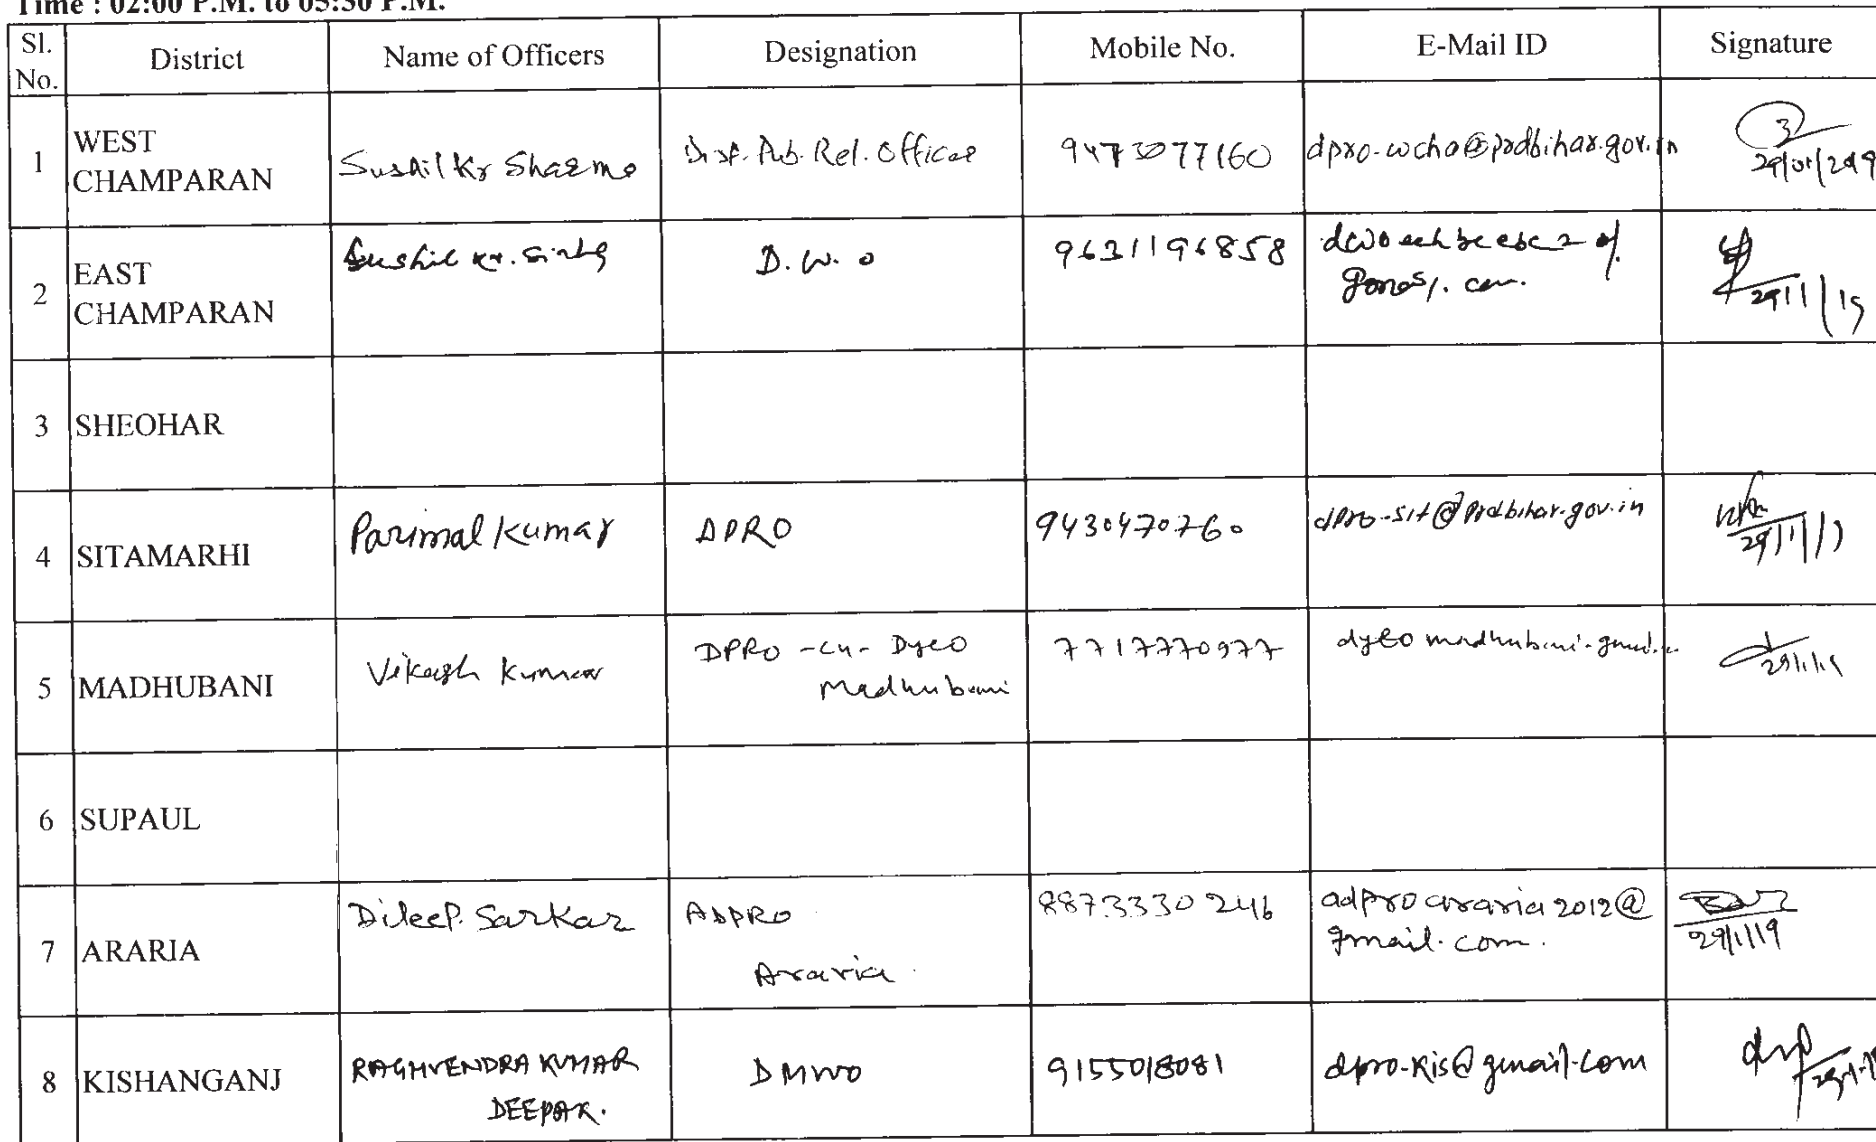 Time : 02:00 P.M. to 05:30 P.M.
Sl. No. District Name of Officers Designation Mobile No. E-Mail ID Signature
1 WEST CHAMPARAN Sushil Kr Sharma Dist. Pub. Rel. Officer 9473077160 dpro-wcha@prdbihar.gov.in 29/01/2019
2 EAST CHAMPARAN Sushil Kr. Singh D.W.O 9631196858 29/1/19
3 SHEOHAR
4 SITAMARHI Parimal Kumar DPRO 9430470760 dpro-sit@prdbihar.gov.in 29/1/19
5 MADHUBANI Vikash Kumar DPRO -cu- Dyeo 7717770977 29/1/19
Madhubani
6 SUPAUL
7 ARARIA Dileep. Sarkar ADPRO 8873330246 adproararia2012@ 29/1/19
Araria gmail.com.
8 KISHANGANJ RAGHVENDRA KUMAR DMWO 9155018081 dpro-kis@gmail.com
DEEPAK.